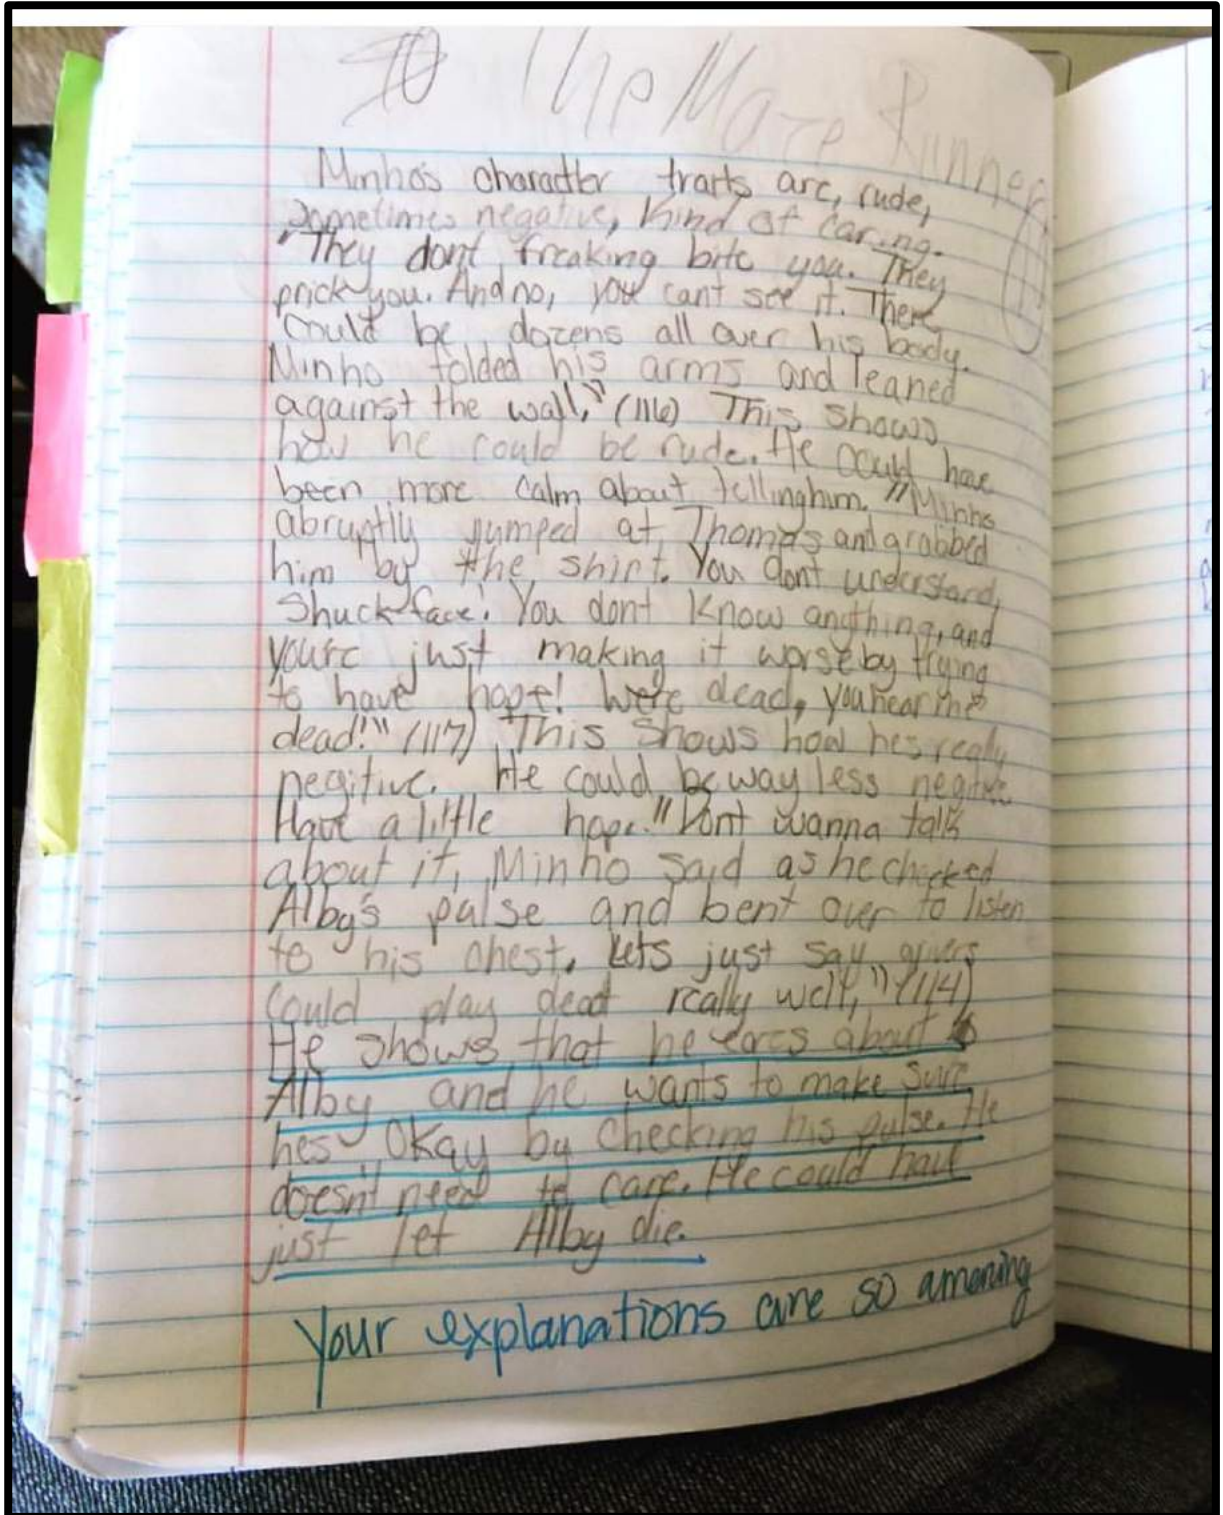 The Maze Runner
Minho's charactter traits are, rude,
sometimes negative, kind of caring.
"They dont freaking bite you. They
prick you. And no, you cant see it. There
could be dozens all over his body.
Minho folded his arms and leaned
against the wall," (116) This shows
how he could be rude. He could have
been more calm about telling him. "Minho
abruptly jumped at Thomas and grabbed
him by the shirt. You dont understand,
Shuck-face! You dont know anything, and
you're just making it worse by trying
to have hope! We're dead, you hear me
dead!" (117) This shows how hes really
negitive. He could be way less negitive
Have a little hope. "Dont wanna talk
about it, Minho said as he checked
Alby's pulse and bent over to listen
to his chest. Lets just say grivers
could play dead really well," (114)
He shows that he cares about
Alby and he wants to make sure
hes okay by checking his pulse. He
doesn't need to care. He could have
just let Alby die.
Your explanations are so amazing